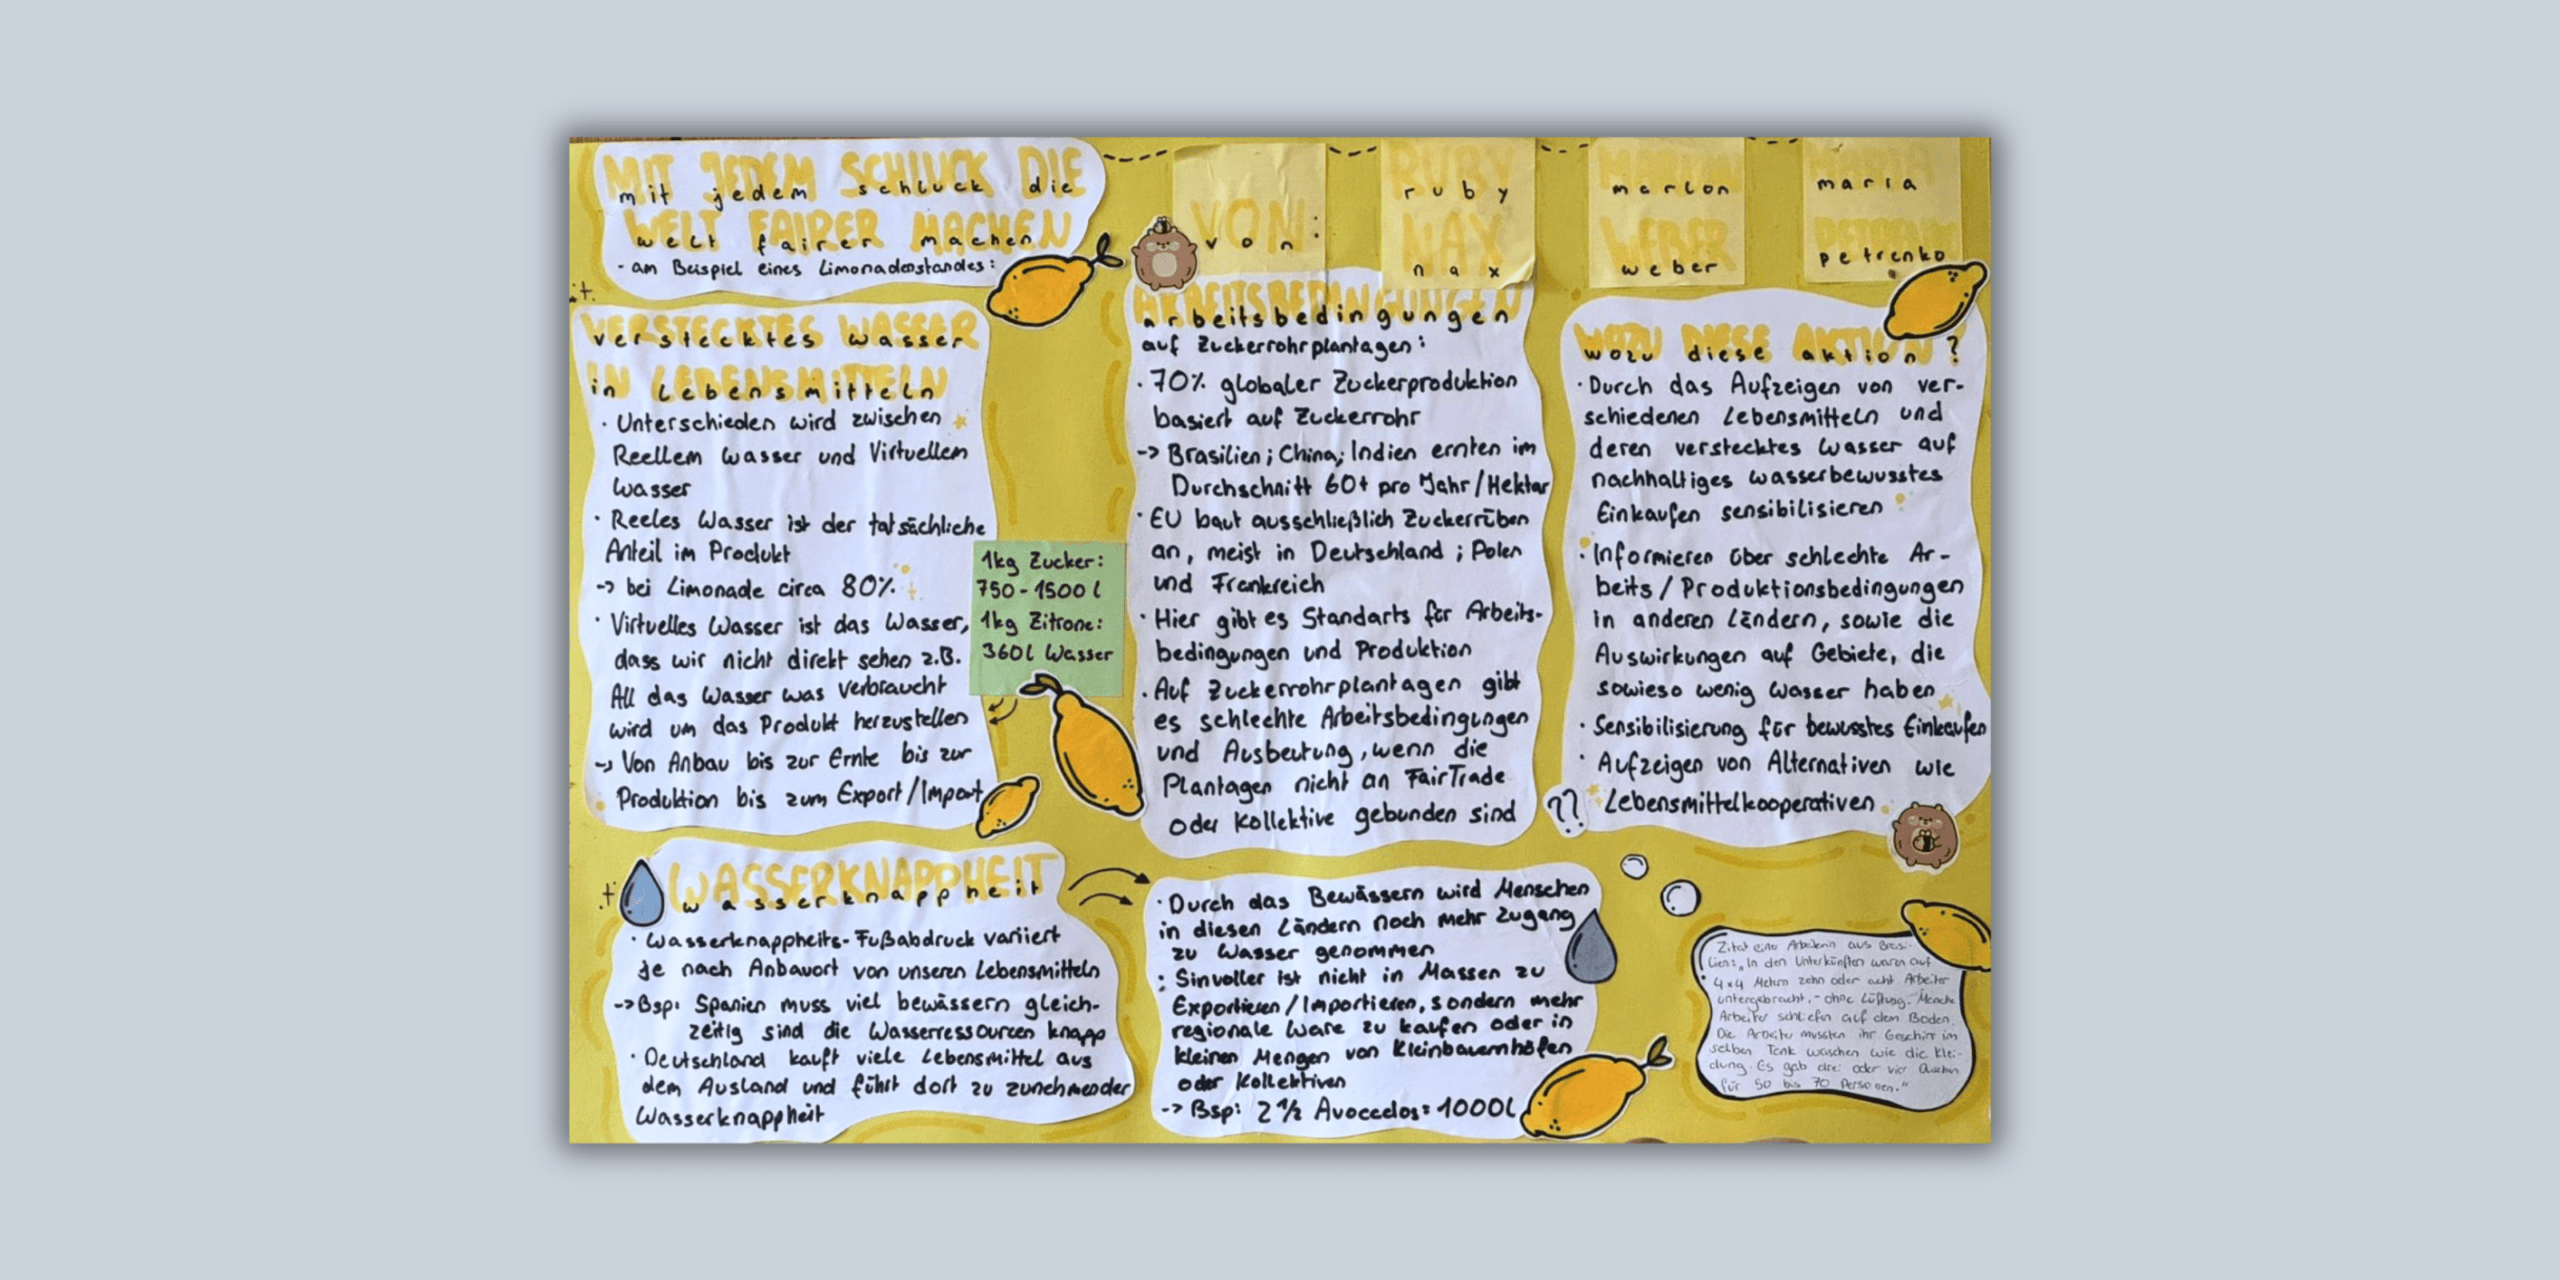 MIT JEDEM SCHLUCK DIE
mit jedem schluck die
WELT FAIRER MACHEN
welt fairer machen
- am Beispiel eines Limonadenstandes:
VON:
von:
RUBY
ruby
NAX
nax
MARLON
marlon
WEBER
weber
MARIA
maria
PETRENKO
petrenko
VERSTECKTES WASSER
verstecktes wasser
IN LEBENSMITTELN
in Lebensmitteln
· Unterschieden wird zwischen
Reellem Wasser und Virtuellem
Wasser
· Reeles Wasser ist der tatsächliche
Anteil im Produkt
-> bei Limonade circa 80%
· Virtuelles Wasser ist das Wasser,
dass wir nicht direkt sehen z.B.
All das Wasser was verbraucht
wird um das Produkt herzustellen
-> Von Anbau bis zur Ernte bis zur
Produktion bis zum Export/Import
1kg Zucker:
750-1500 l
1kg Zitrone:
360l Wasser
ARBEITSBEDINGUNGEN
arbeitsbedingungen
auf Zuckerrohrplantagen:
· 70% globaler Zuckerproduktion
basiert auf Zuckerrohr
-> Brasilien; China; Indien ernten im
Durchschnitt 60t pro Jahr/Hektar
· EU baut ausschließlich Zuckerrüben
an, meist in Deutschland; Polen
und Frankreich
· Hier gibt es Standarts für Arbeits-
bedingungen und Produktion
· Auf Zuckerrohrplantagen gibt
es schlechte Arbeitsbedingungen
und Ausbeutung, wenn die
Plantagen nicht an FairTrade
oder Kollektive gebunden sind
WOZU DIESE AKTION?
wozu diese aktion?
· Durch das Aufzeigen von ver-
schiedenen Lebensmitteln und
deren verstecktes Wasser auf
nachhaltiges wasserbewusstes
Einkaufen sensibilisieren
· Informieren über schlechte Ar-
beits/Produktionsbedingungen
in anderen Ländern, sowie die
Auswirkungen auf Gebiete, die
sowieso wenig Wasser haben
· Sensibilisierung für bewusstes Einkaufen
· Aufzeigen von Alternativen wie
Lebensmittelkooperativen
??
WASSERKNAPPHEIT
wasserknappheit
· Wasserknappheits-Fußabdruck variiert
je nach Anbauort von unseren Lebensmitteln
-> Bsp: Spanien muss viel bewässern gleich-
zeitig sind die Wasserressourcen knapp
· Deutschland kauft viele Lebensmittel aus
dem Ausland und führt dort zu zunehmender
Wasserknappheit
· Durch das Bewässern wird Menschen
in diesen Ländern noch mehr Zugang
zu Wasser genommen
: Sinvoller ist nicht in Massen zu
Exportieren/Importieren, sondern mehr
regionale Ware zu kaufen oder in
kleinen Mengen von Kleinbauernhöfen
oder Kollektiven
-> Bsp: 2 1/2 Avocados = 1000l
Zitat einer Arbeiterin aus Brasi-
lien: „In den Unterkünften waren auf
4x4 Metern zehn oder acht Arbeiter
untergebracht, - ohne Lüftung. Manche
Arbeiter schliefen auf dem Boden.
Die Arbeiter mussten ihr Geschirr im
selben Tank waschen wie die Klei-
dung. Es gab drei oder vier Duschen
für 50 bis 70 Personen."